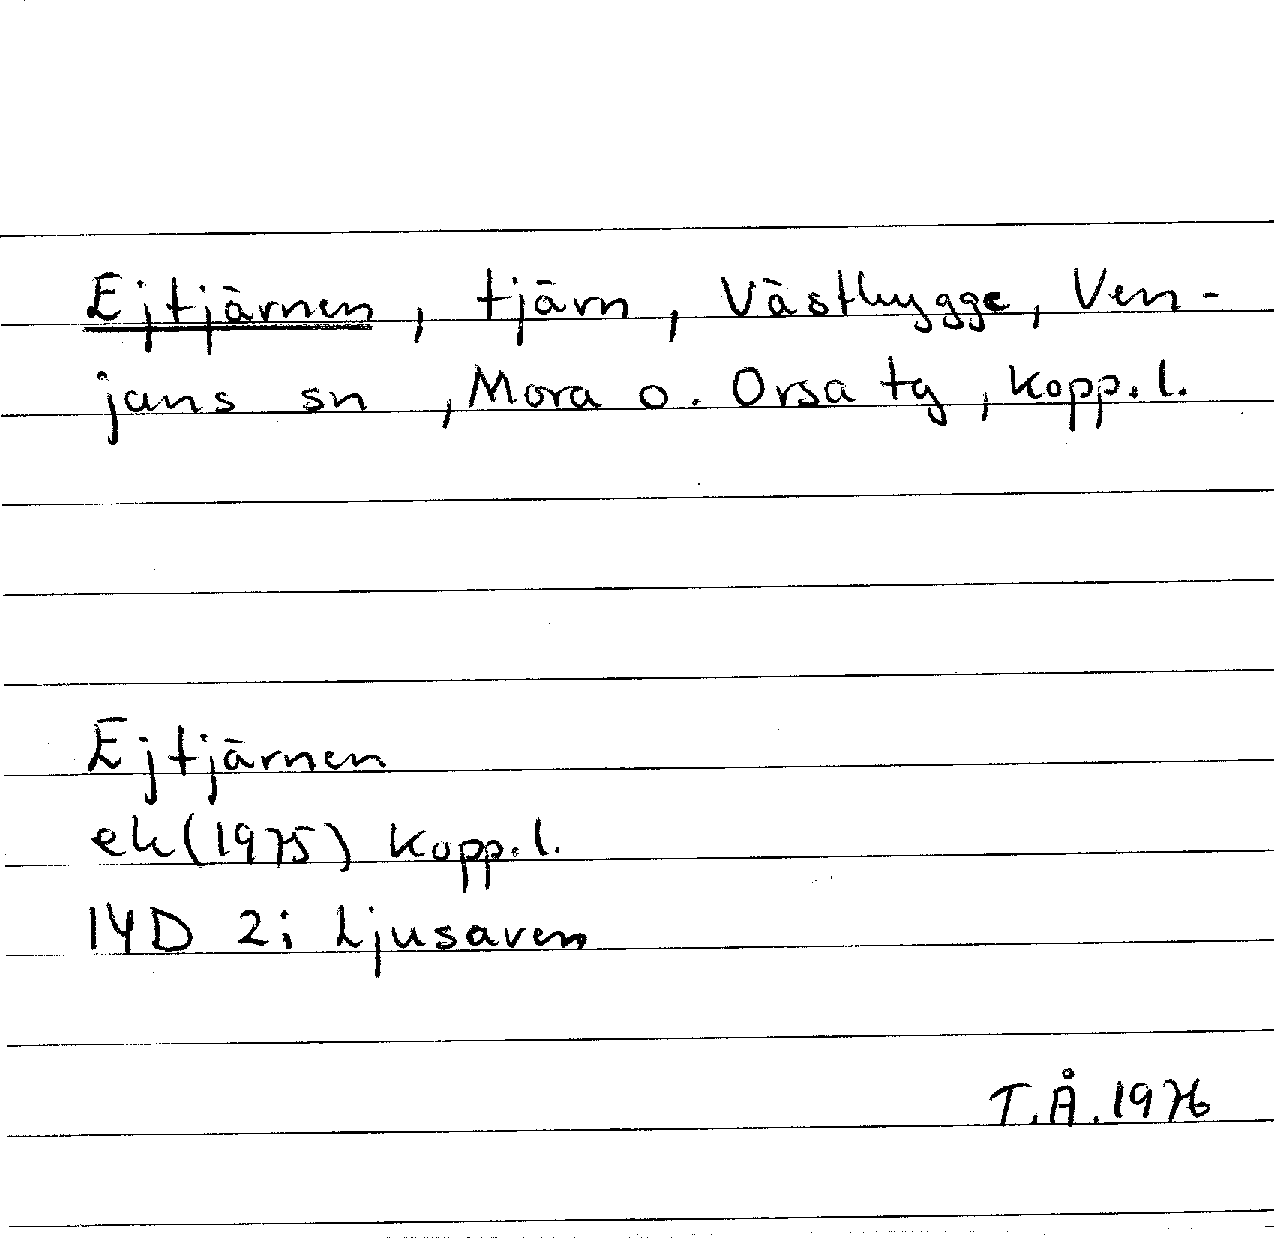 Ejtjärnen, tjärn, Västbygge, Ven-
jans sn, Mora o. Orsa tg, Kopp.l.
Ejtjärnen
ek(1975) Kopp.l.
14D 2i Ljusaven
T.Å.1976